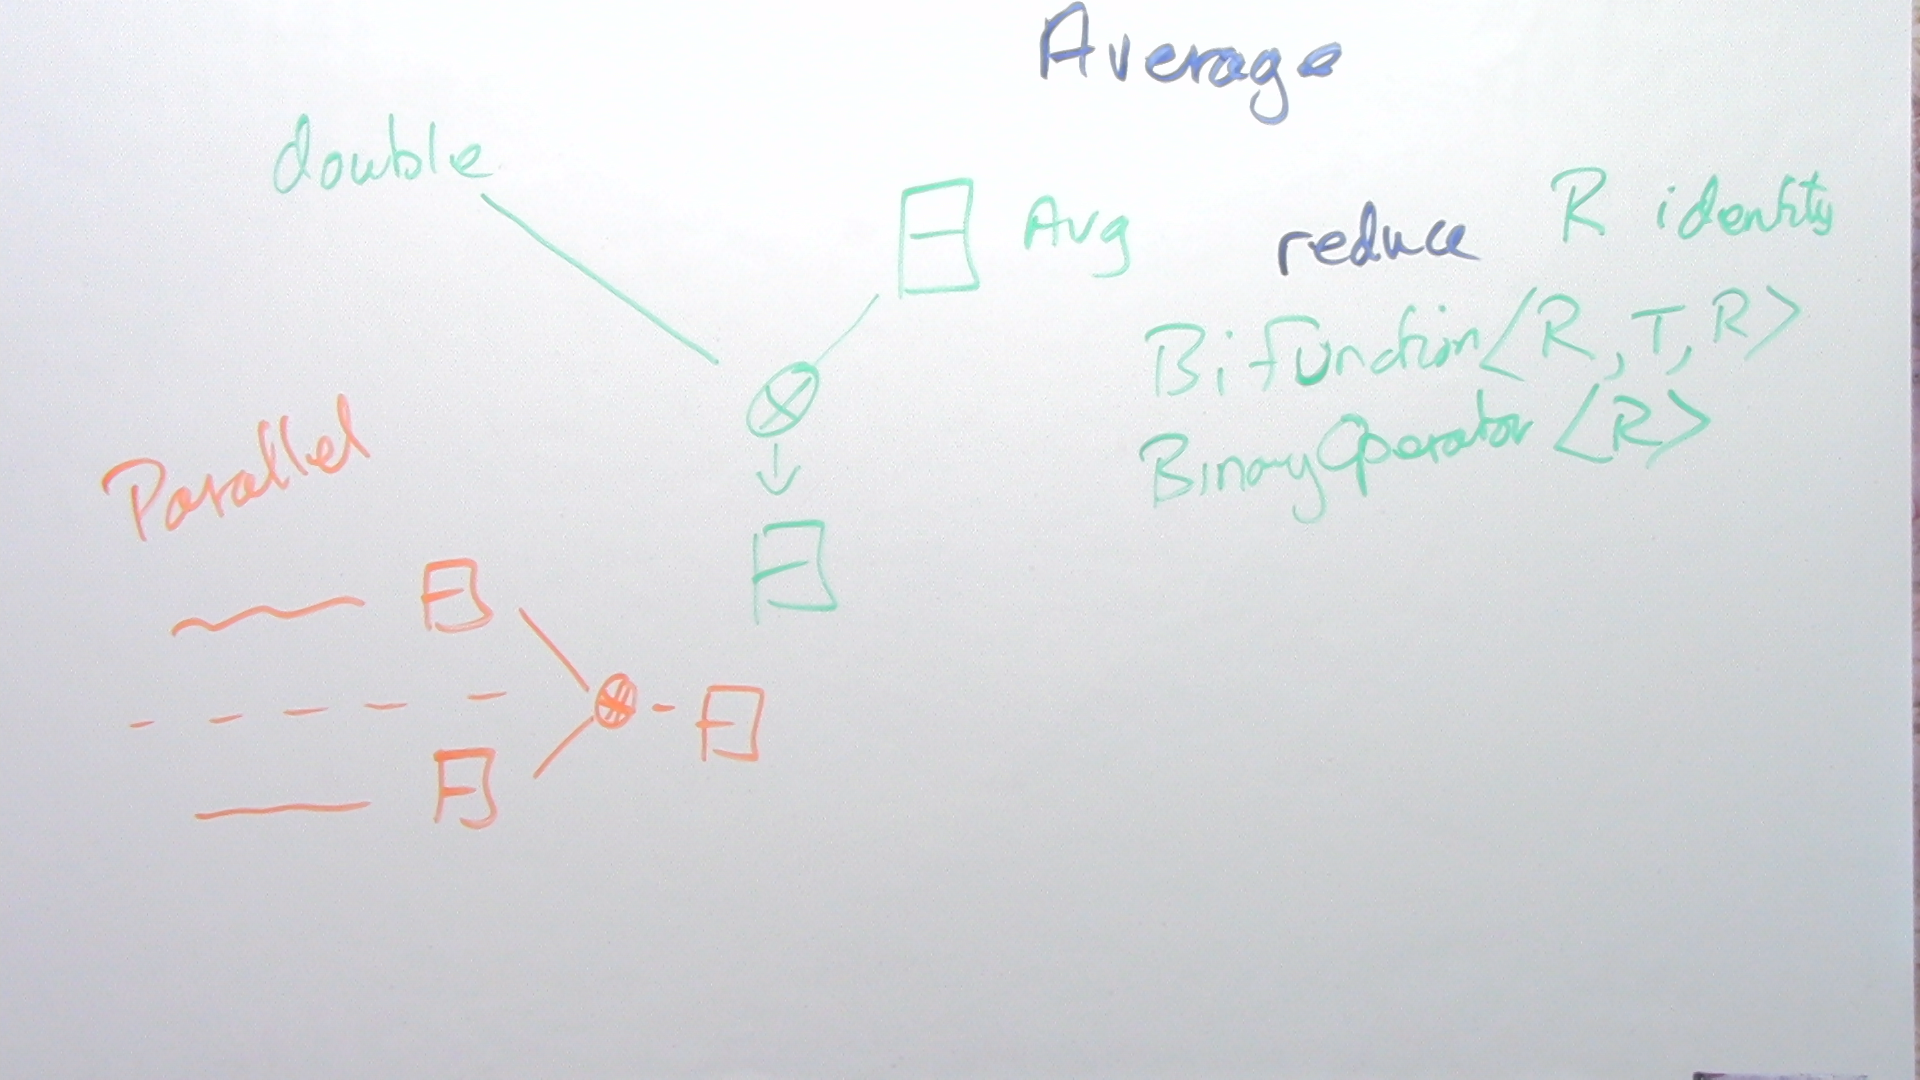 Average
double
Avg
reduce R identity
BiFunction<R, T, R>
BinaryOperator<R>
Parallel